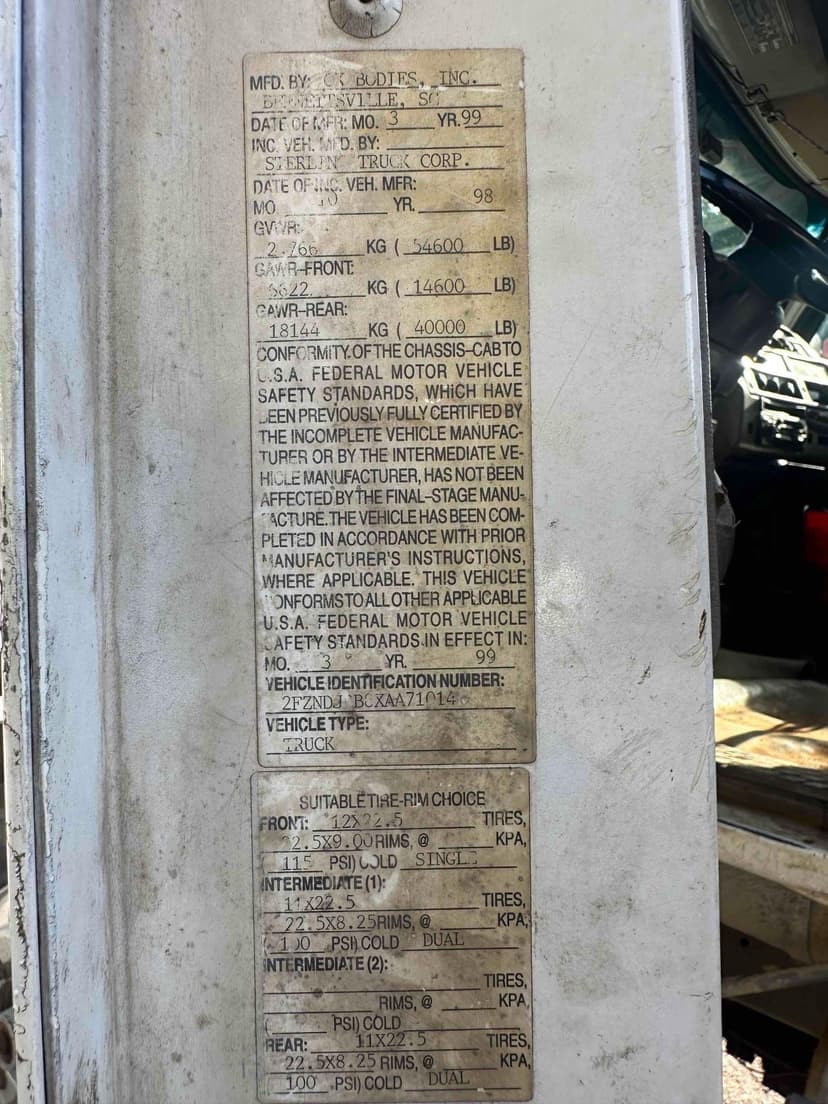 MFD. BY: OX BODIES, INC.
BENNETTSVILLE, SC
DATE OF MFR: MO. 3 YR. 99
INC. VEH. MFD. BY:
STERLING TRUCK CORP.
DATE OF INC. VEH. MFR:
MO. 10 YR. 98
GVWR:
KG ( 54600 LB)
GAWR-FRONT:
6622 KG ( 14600 LB)
GAWR-REAR:
18144 KG ( 40000 LB)
CONFORMITY OF THE CHASSIS-CAB TO
U.S.A. FEDERAL MOTOR VEHICLE
SAFETY STANDARDS, WHICH HAVE
BEEN PREVIOUSLY FULLY CERTIFIED BY
THE INCOMPLETE VEHICLE MANUFAC-
TURER OR BY THE INTERMEDIATE VE-
HICLE MANUFACTURER, HAS NOT BEEN
AFFECTED BY THE FINAL-STAGE MANU-
FACTURE. THE VEHICLE HAS BEEN COM-
PLETED IN ACCORDANCE WITH PRIOR
MANUFACTURER'S INSTRUCTIONS,
WHERE APPLICABLE. THIS VEHICLE
CONFORMS TO ALL OTHER APPLICABLE
U.S.A. FEDERAL MOTOR VEHICLE
SAFETY STANDARDS IN EFFECT IN:
MO. 3 YR. 99
VEHICLE IDENTIFICATION NUMBER:
VEHICLE TYPE:
TRUCK
SUITABLE TIRE-RIM CHOICE
FRONT: 12X22.5 TIRES,
22.5X9.00 RIMS, @ KPA,
( 115 PSI) COLD SINGLE
INTERMEDIATE (1):
11X22.5 TIRES,
22.5X8.25 RIMS, @ KPA,
( 100 PSI) COLD DUAL
INTERMEDIATE (2):
TIRES,
RIMS, @ KPA,
( PSI) COLD
REAR: 11X22.5 TIRES,
22.5X8.25 RIMS, @ KPA,
( 100 PSI) COLD DUAL